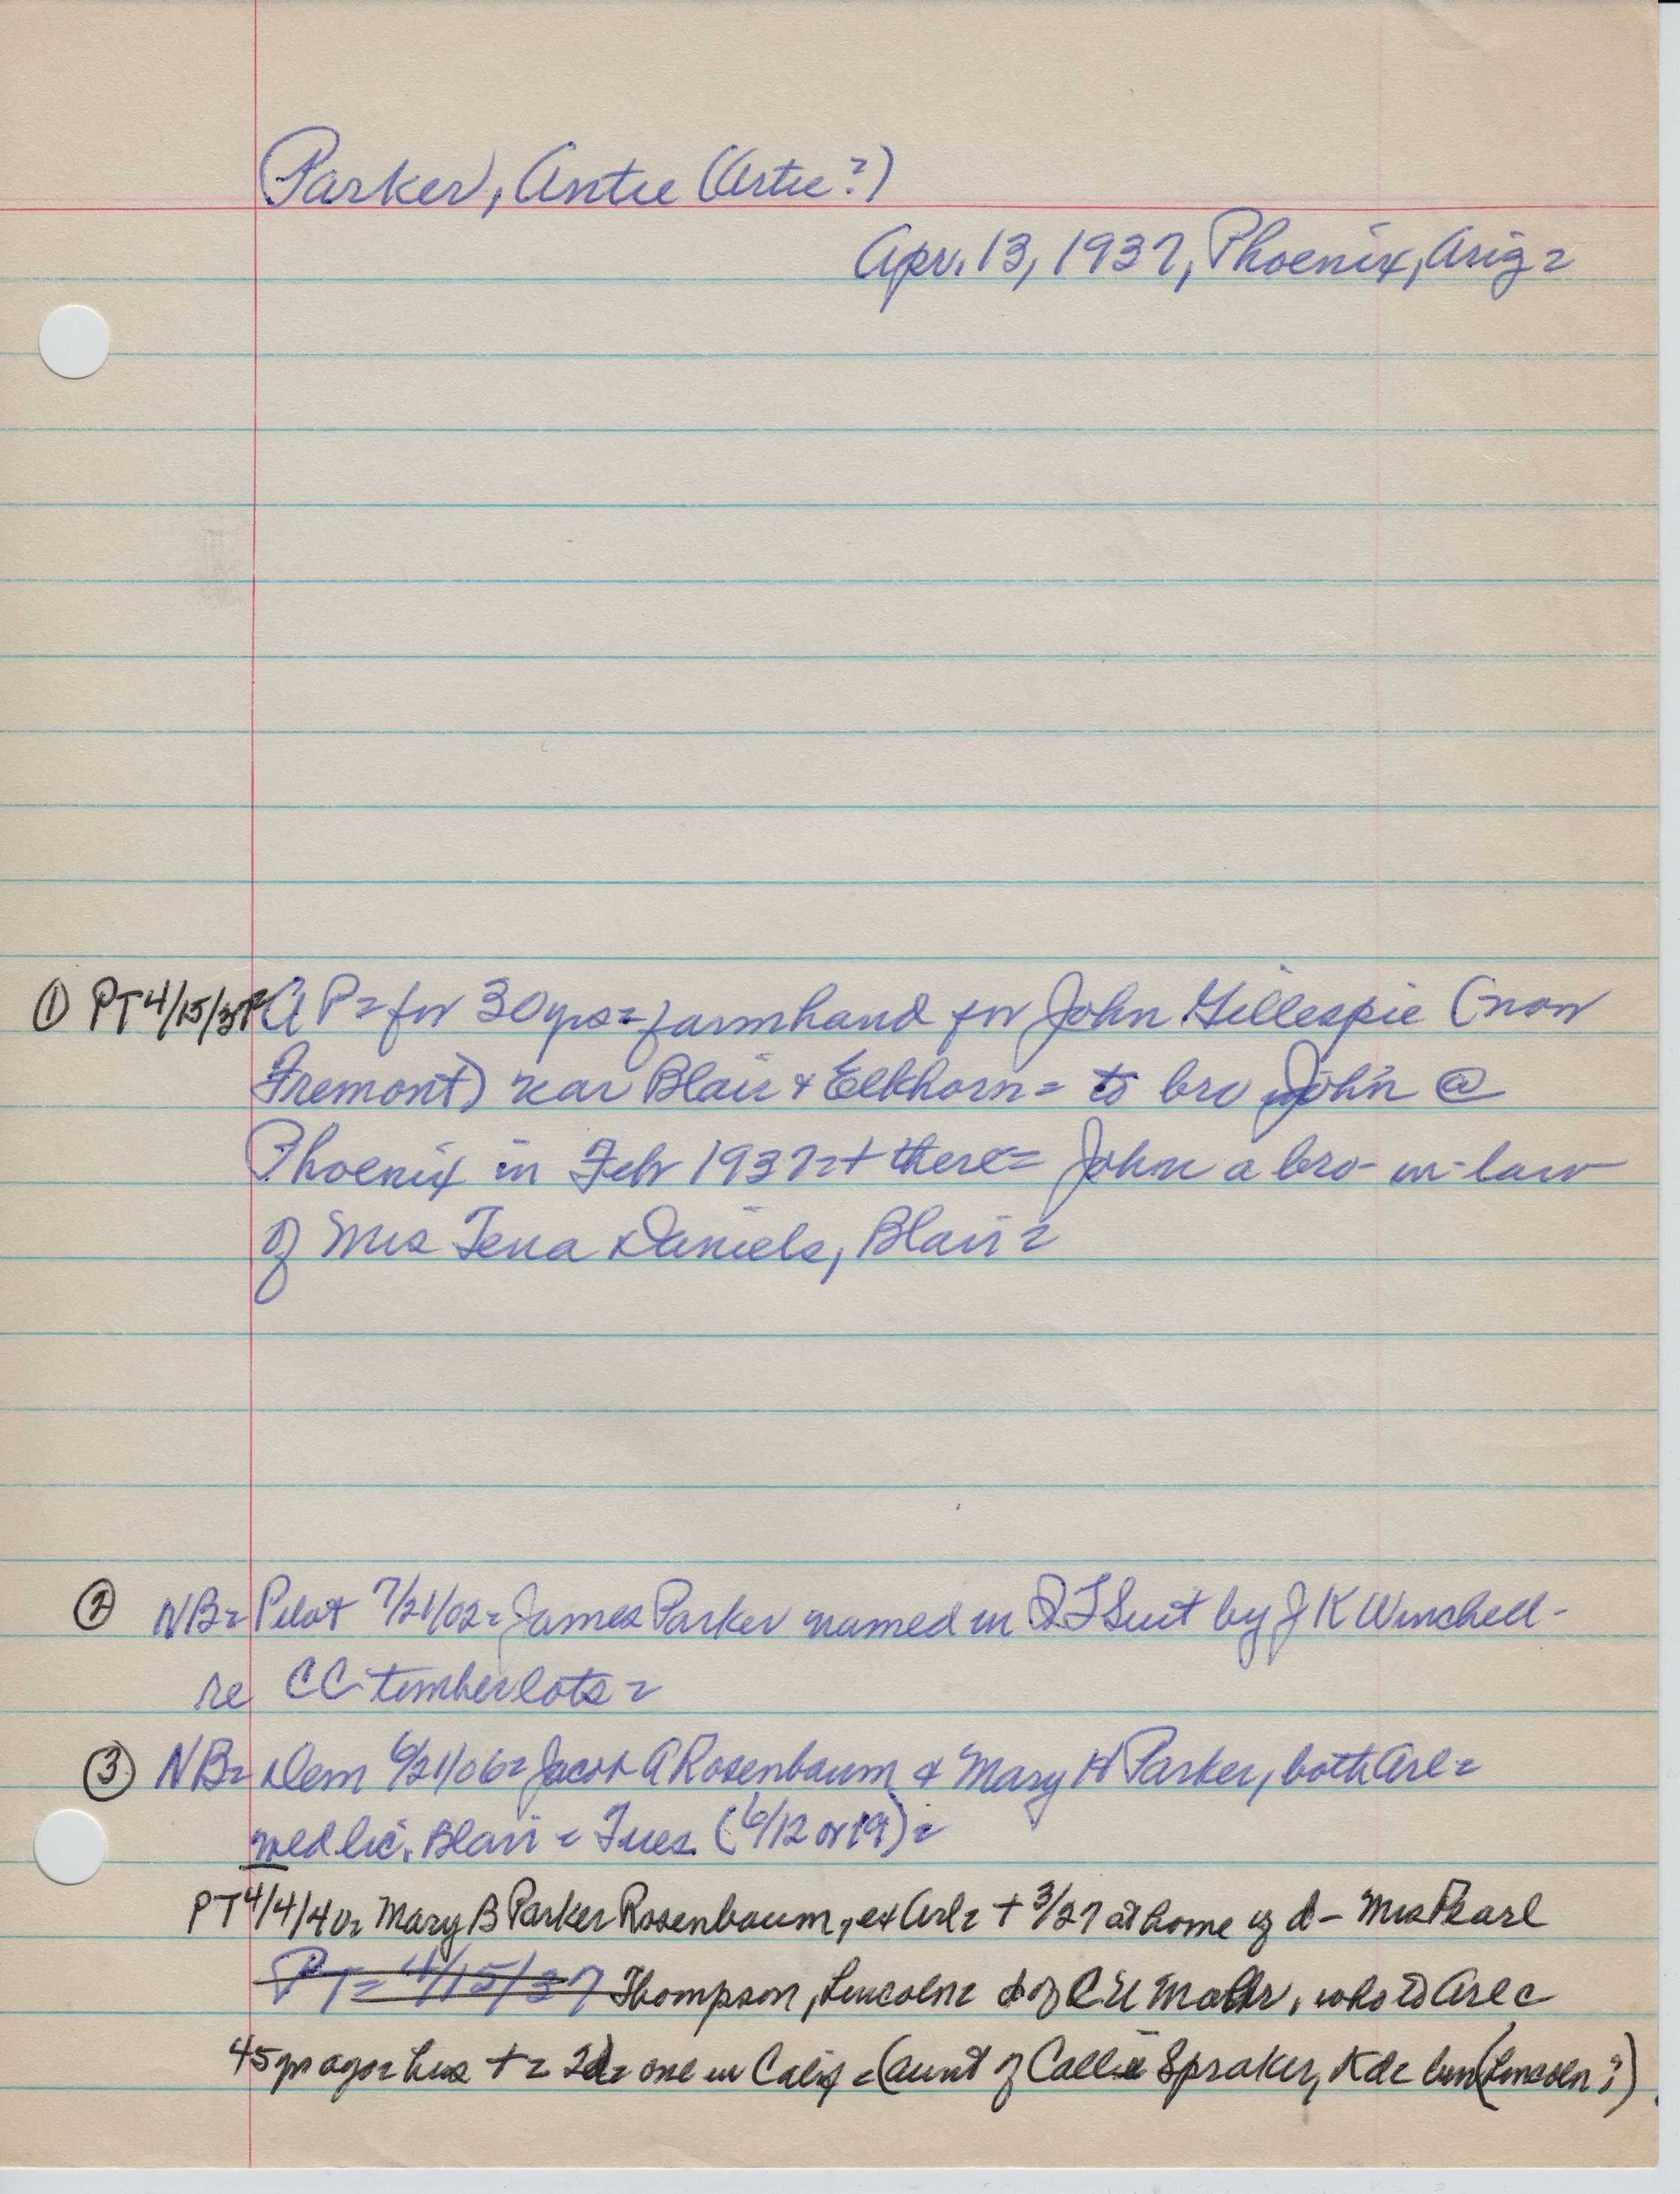 Parker, Antie (Artie?)
Apr. 13, 1937, Phoenix, Ariz =
① PT 4/15/37 = A P = for 30 yrs = farmhand for John Gillespie (now
Fremont) near Blair & Elkhorn = to bro John @
Phoenix in Feb 1937 = + there = John a bro-in-law
of Mrs Tena Daniels, Blair =
② NB = Pilot 7/21/02 = James Parker named in QT Suit by J K Winchell -
re CC timberlots =
③ NB = Dem 6/21/06 = Jacob A Rosenbaum & Mary H Parker, both Arl =
wed lic. Blair = Tues. (6/12 or 19) =
PT 4/4/40 = Mary B Parker Rosenbaum, ex Arl = + 3/27 at home of d - Mrs Pearl
PT = 4/15/37 Thompson, Lincoln = d of C U , who to Arl c
45 yrs ago = hus + = 2d = one in Calif = (aunt of Callie Spraker, Kd = (Lincoln?)